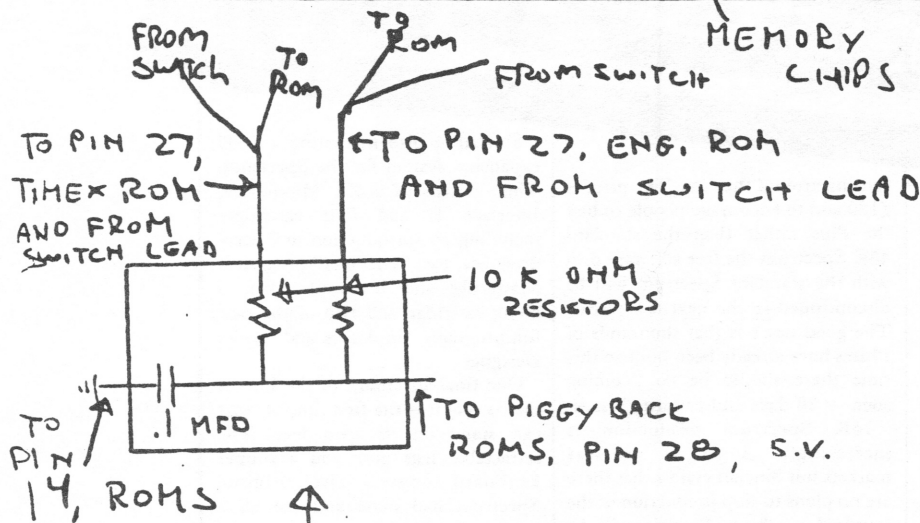 FROM SWITCH
TO ROM
TO ROM
FROM SWITCH
MEMORY CHIPS
TO PIN 27,
TIMEX ROM
AND FROM
SWITCH LEAD
TO PIN 27, ENG. ROM
AND FROM SWITCH LEAD
10 K OHM
RESISTORS
.1 MFD
TO
PIN
14, ROMS
TO PIGGY BACK
ROMS, PIN 28, 5.V.